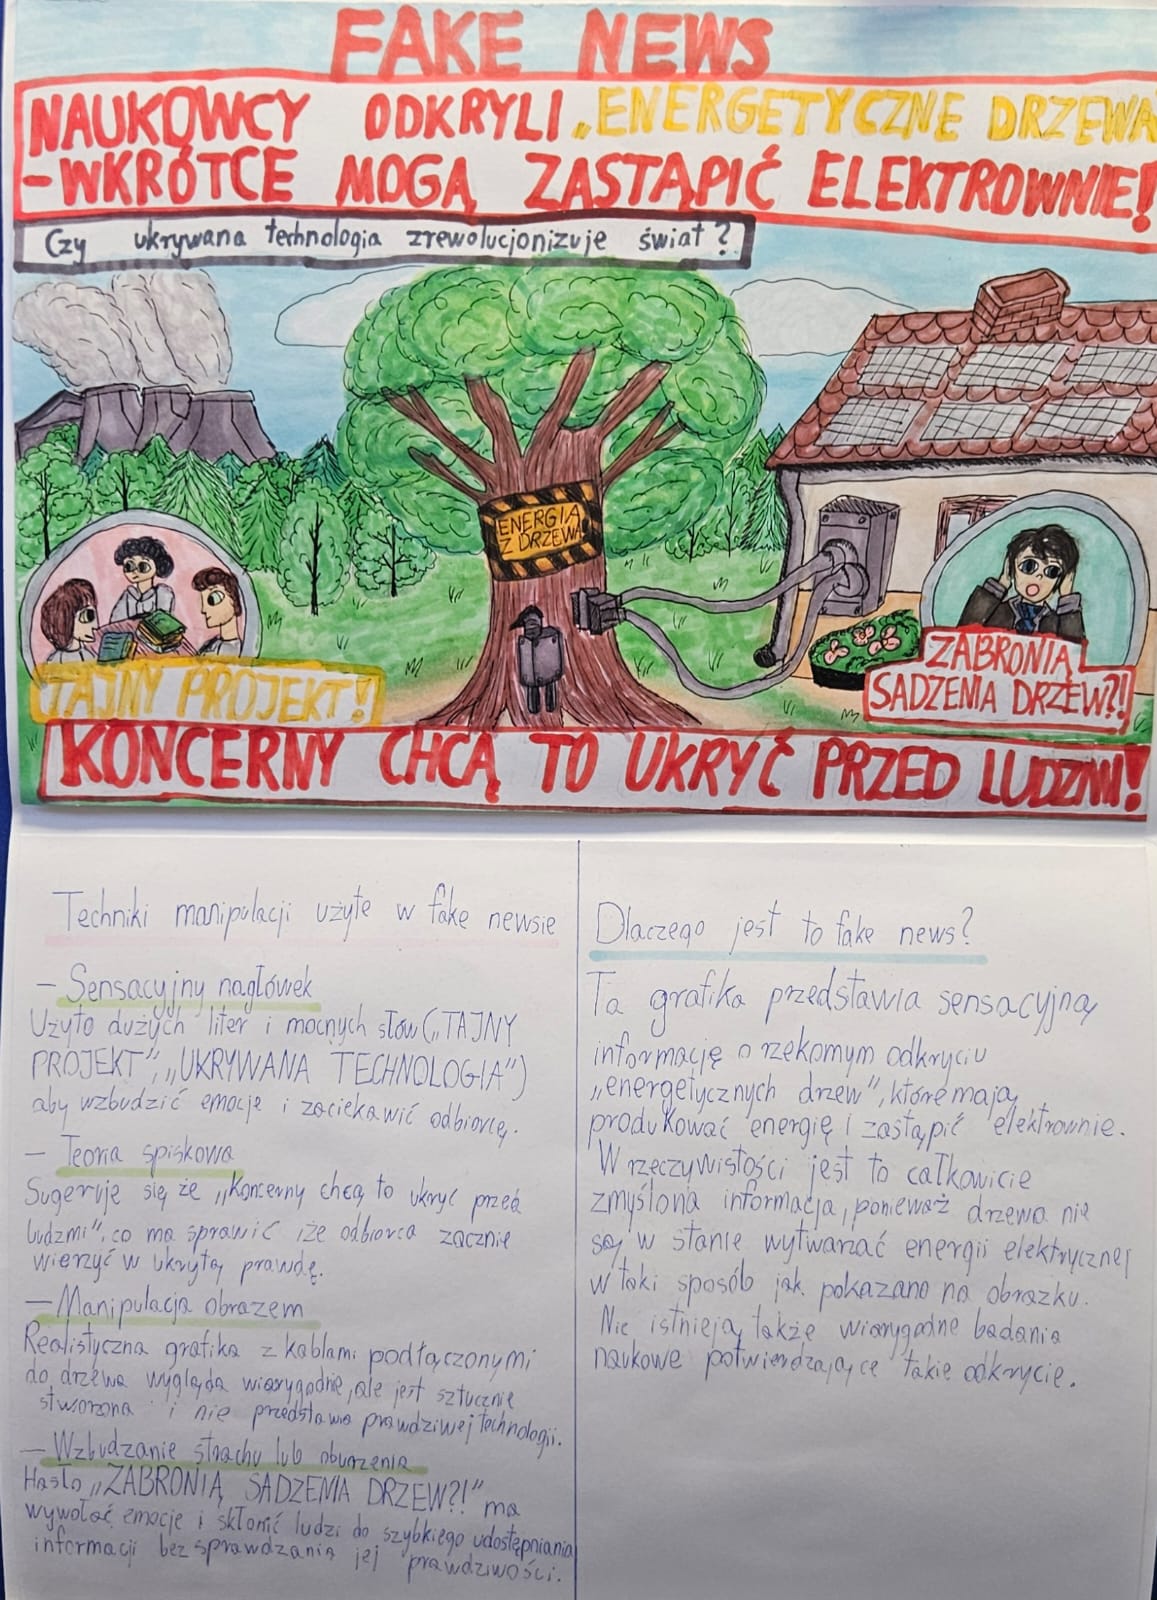 FAKE NEWS
NAUKOWCY ODKRYLI „ENERGETYCZNE DRZEWA
-WKRÓTCE MOGĄ ZASTĄPIĆ ELEKTROWNIE!
Czy ukrywana technologia zrewolucjonizuje świat?
ENERGIA
Z DRZEWA
TAJNY PROJEKT!
ZABRONIĄ
SADZENIA DRZEW?!
KONCERNY CHCĄ TO UKRYĆ PRZED LUDZMI!
Techniki manipulacji użyte w fake newsie
- Sensacyjny nagłówek
Użyto dużych liter i mocnych słów („TAJNY
PROJEKT”, „UKRYWANA TECHNOLOGIA”)
aby wzbudzić emocje i zaciekawić odbiorcę.
- Teoria spiskowa
Sugeruje się że „Koncerny chcą to ukryć przed
ludźmi”, co ma sprawić iże odbiorca zacznie
wierzyć w ukrytą prawdę.
- Manipulacja obrazem
Realistyczna grafika z kablami podłączonymi
do drzewa wygląda wiarygodnie, ale jest sztucznie
stworzona i nie przedstawia prawdziwej technologii.
- Wzbudzanie strachu lub oburzenia
Hasło „ZABRONIĄ SADZENIA DRZEW?!” ma
wywołać emocje i skłonić ludzi do szybkiego udostępniania
informacji bez sprawdzania jej prawdziwości.
Dlaczego jest to fake news?
Ta grafika przedstawia sensacyjną
informację o rzekomym odkryciu
„energetycznych drzew”, które mają
produkować energię i zastąpić elektrownie.
W rzeczywistości jest to całkowicie
zmyślona informacja, ponieważ drzewa nie
są w stanie wytwarzać energii elektrycznej
w taki sposób jak pokazano na obrazku.
Nie istnieją także wiarygodne badania
naukowe potwierdzające takie odkrycie.